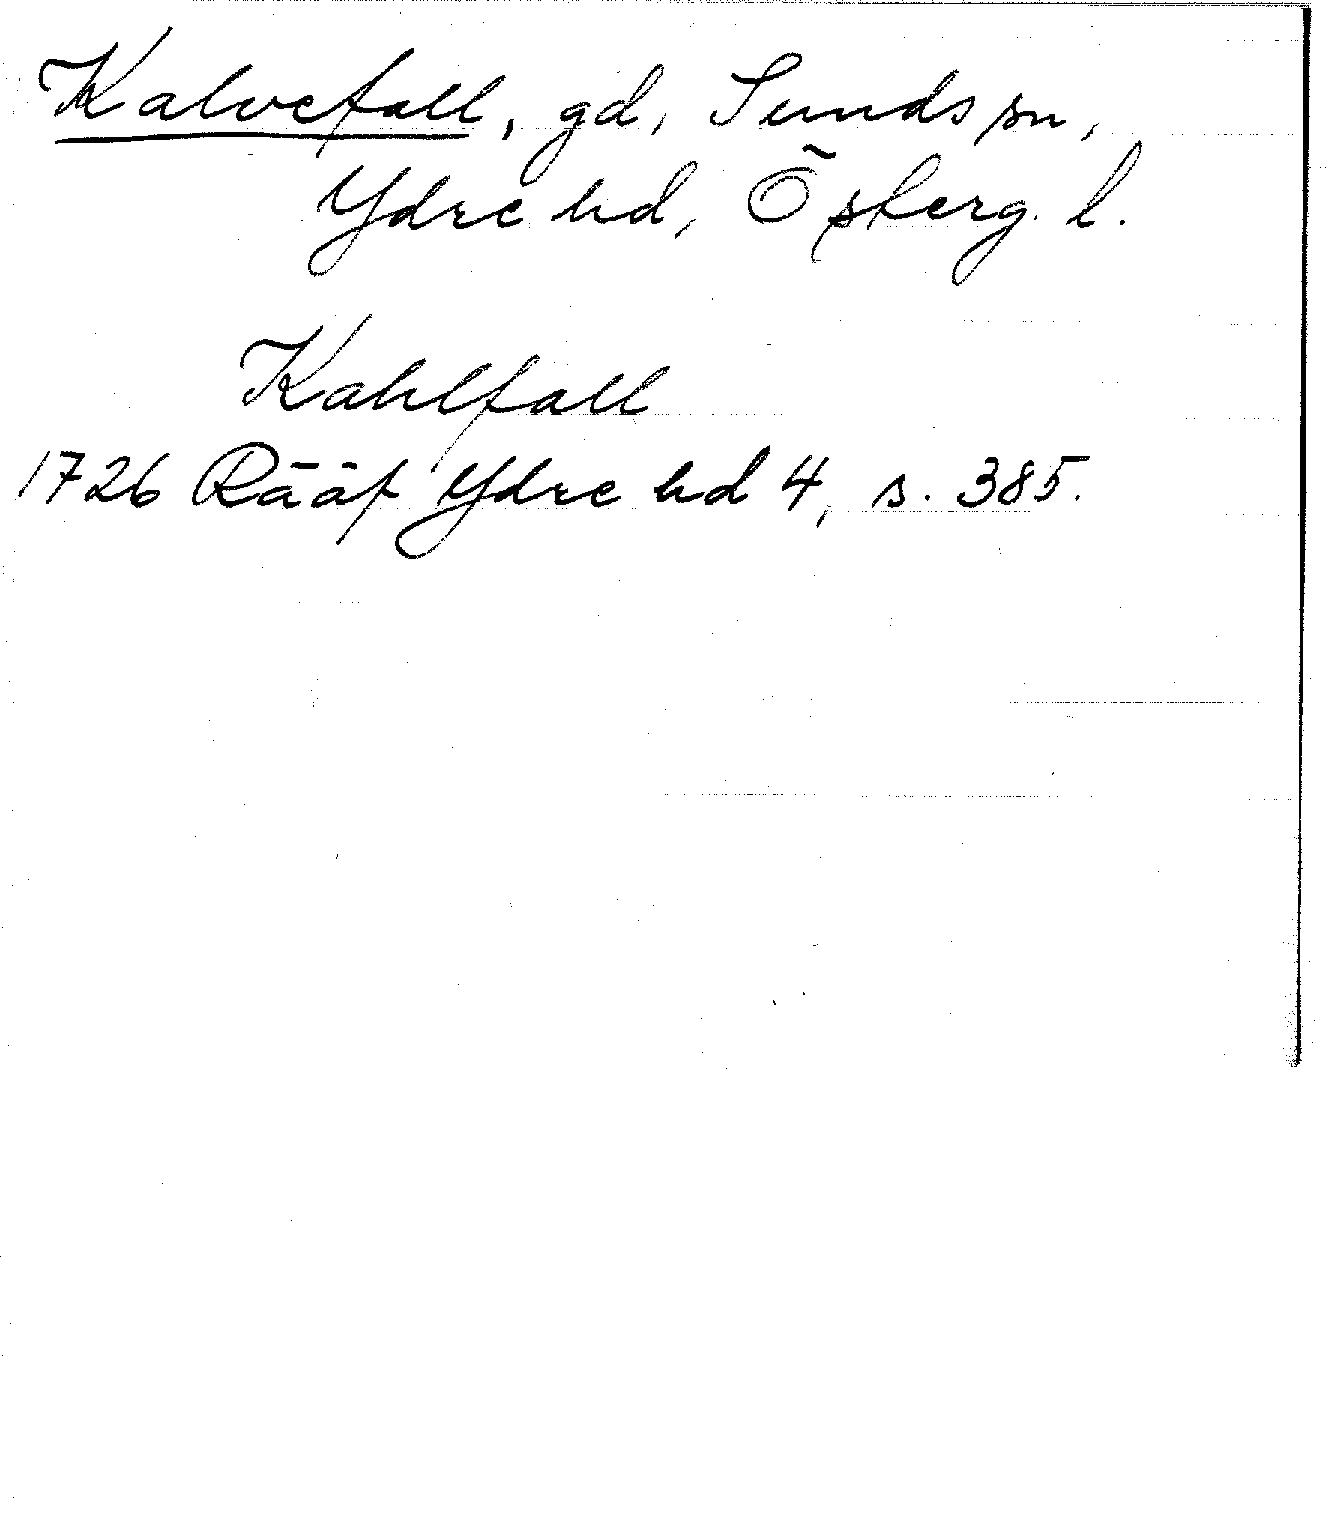 Kalvefall, gd, Sunds sn,
Ydre hd, Österg. l.
Kahlfall
1726 Rääf Ydre hd 4, s. 385.